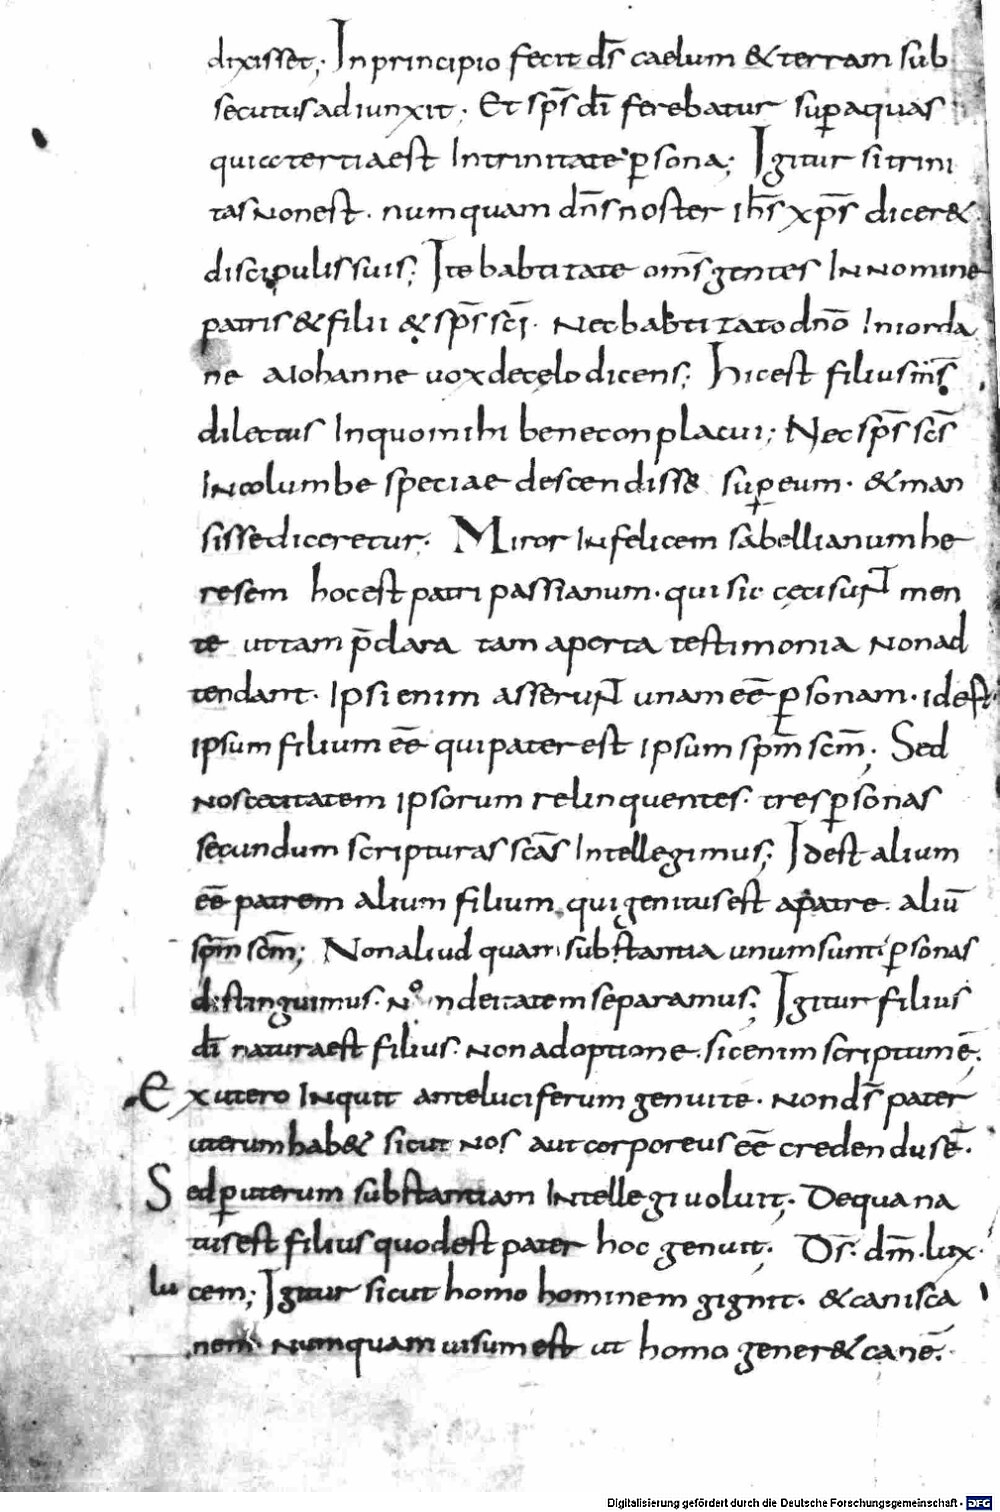 dixisset; In principio fecit d̄s caelum & terram sub
secutus adiunxit. Et sp̄s d̄i ferebatur sup̱ aquas
qui tertia est In trinitate p̱sona; Igitur si trini
tas Non est. numquam dn̄s noster ih̄s xp̄s dicer&
discipulis suis; Ite babtizate om̄s gentes IN Nomine
patris & filii & sp̄s sc̄i. Nec babtizato dn̄o In iorda
ne a Iohanne uox de cęlo dicens; Hic est filius m̄s
dilectus In quo mihi bene conplacui; Nec sp̄s sc̄s
IN columbe speciae descendisse sup̱ eum. & man
sisse diceretur. Miror INfelicem sabellianum he
resem hoc est patri passianum. qui sic cęci suNT men
te ut tam p̄clara tam aperta testimonia Non ad
tendant. Ipsi enim asseruNT unam eē p̱sonam. id est
ipsum filium eē qui pater est ipsum spm̄ scm̄; Sed
Nos cecitatem ipsorum relinquentes. tres p̱sonas
secundum scripturas sc̄as Intellegimus; Idest alium
eē patrem alium filium. qui genitus est a patre. aliū
spm̄ scm̄; Non aliud quam substantia unum sunt. p̱sonas
distinguimus. No In deitatem separamus; Igitur filius
d̄i natura est filius. Non adoptione. sic enim scriptum ē;
Ex utero INquit ante luciferum genui te. Non d̄s pater
uterum hab& sicut Nos aut corporeus eē credendus ē.
Sed p̱ uterum substantiam INtellegi uoluit; De qua na
tus est filius quod est pater hoc genuit; D̄s. dm̄. lux.
lucem; Igitur sicut homo hominem gignit. & canis ca
nem. Numquam uisum est ut homo gener& canē.
Digitalisierung gefördert durch die Deutsche Forschungsgemeinschaft - DFG